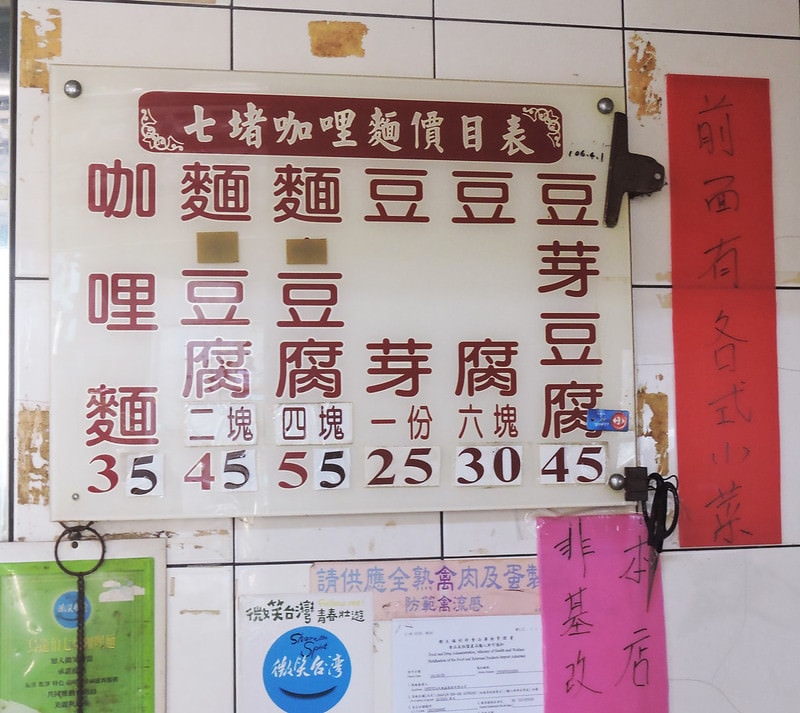 七堵咖哩麵價目表
106.4.1
咖哩麵
35
麵豆腐
二塊
45
麵豆腐
四塊
55
豆芽
一份
25
豆腐
六塊
30
豆芽豆腐
45
前面有各式小菜
本店
非基改
請供應全熟禽肉及蛋製
防範禽流感
微笑台灣 青春壯遊
Smile
Spot
微笑台灣
Food and Drug Administration, Ministry of Health and Welfare